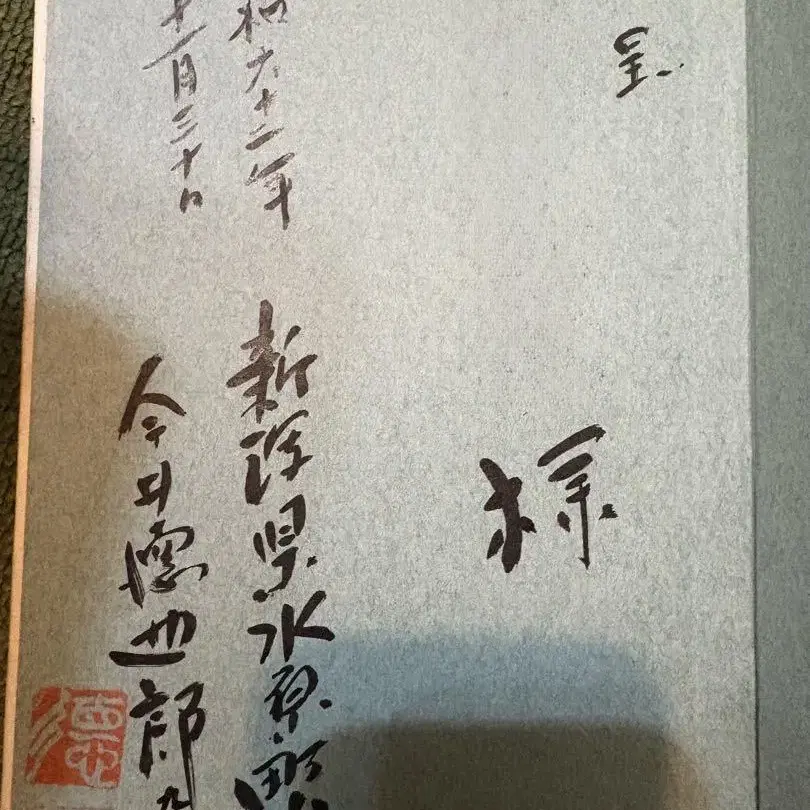 呈
様
和六十二年
十一月三十日
新潟県水原
今井徳
郎
徳